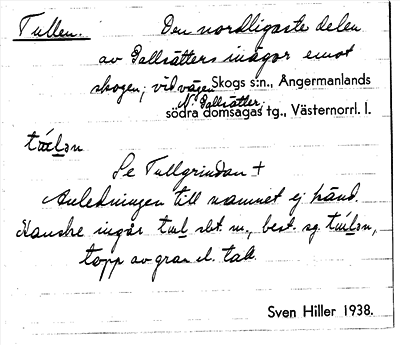 Tullen. Den nordligaste delen
av Gallsätters inägor emot
skogen; vid vägen Skogs s:n., Ångermanlands
N. Gallsätter; södra domsagas tg., Västernorrl. l.
Se Tullgrindan +
Anledningen till namnet ej känd.
Kanske ingår sbt. m., best. sg.
topp av gran el. tall.
Sven Hiller 1938.